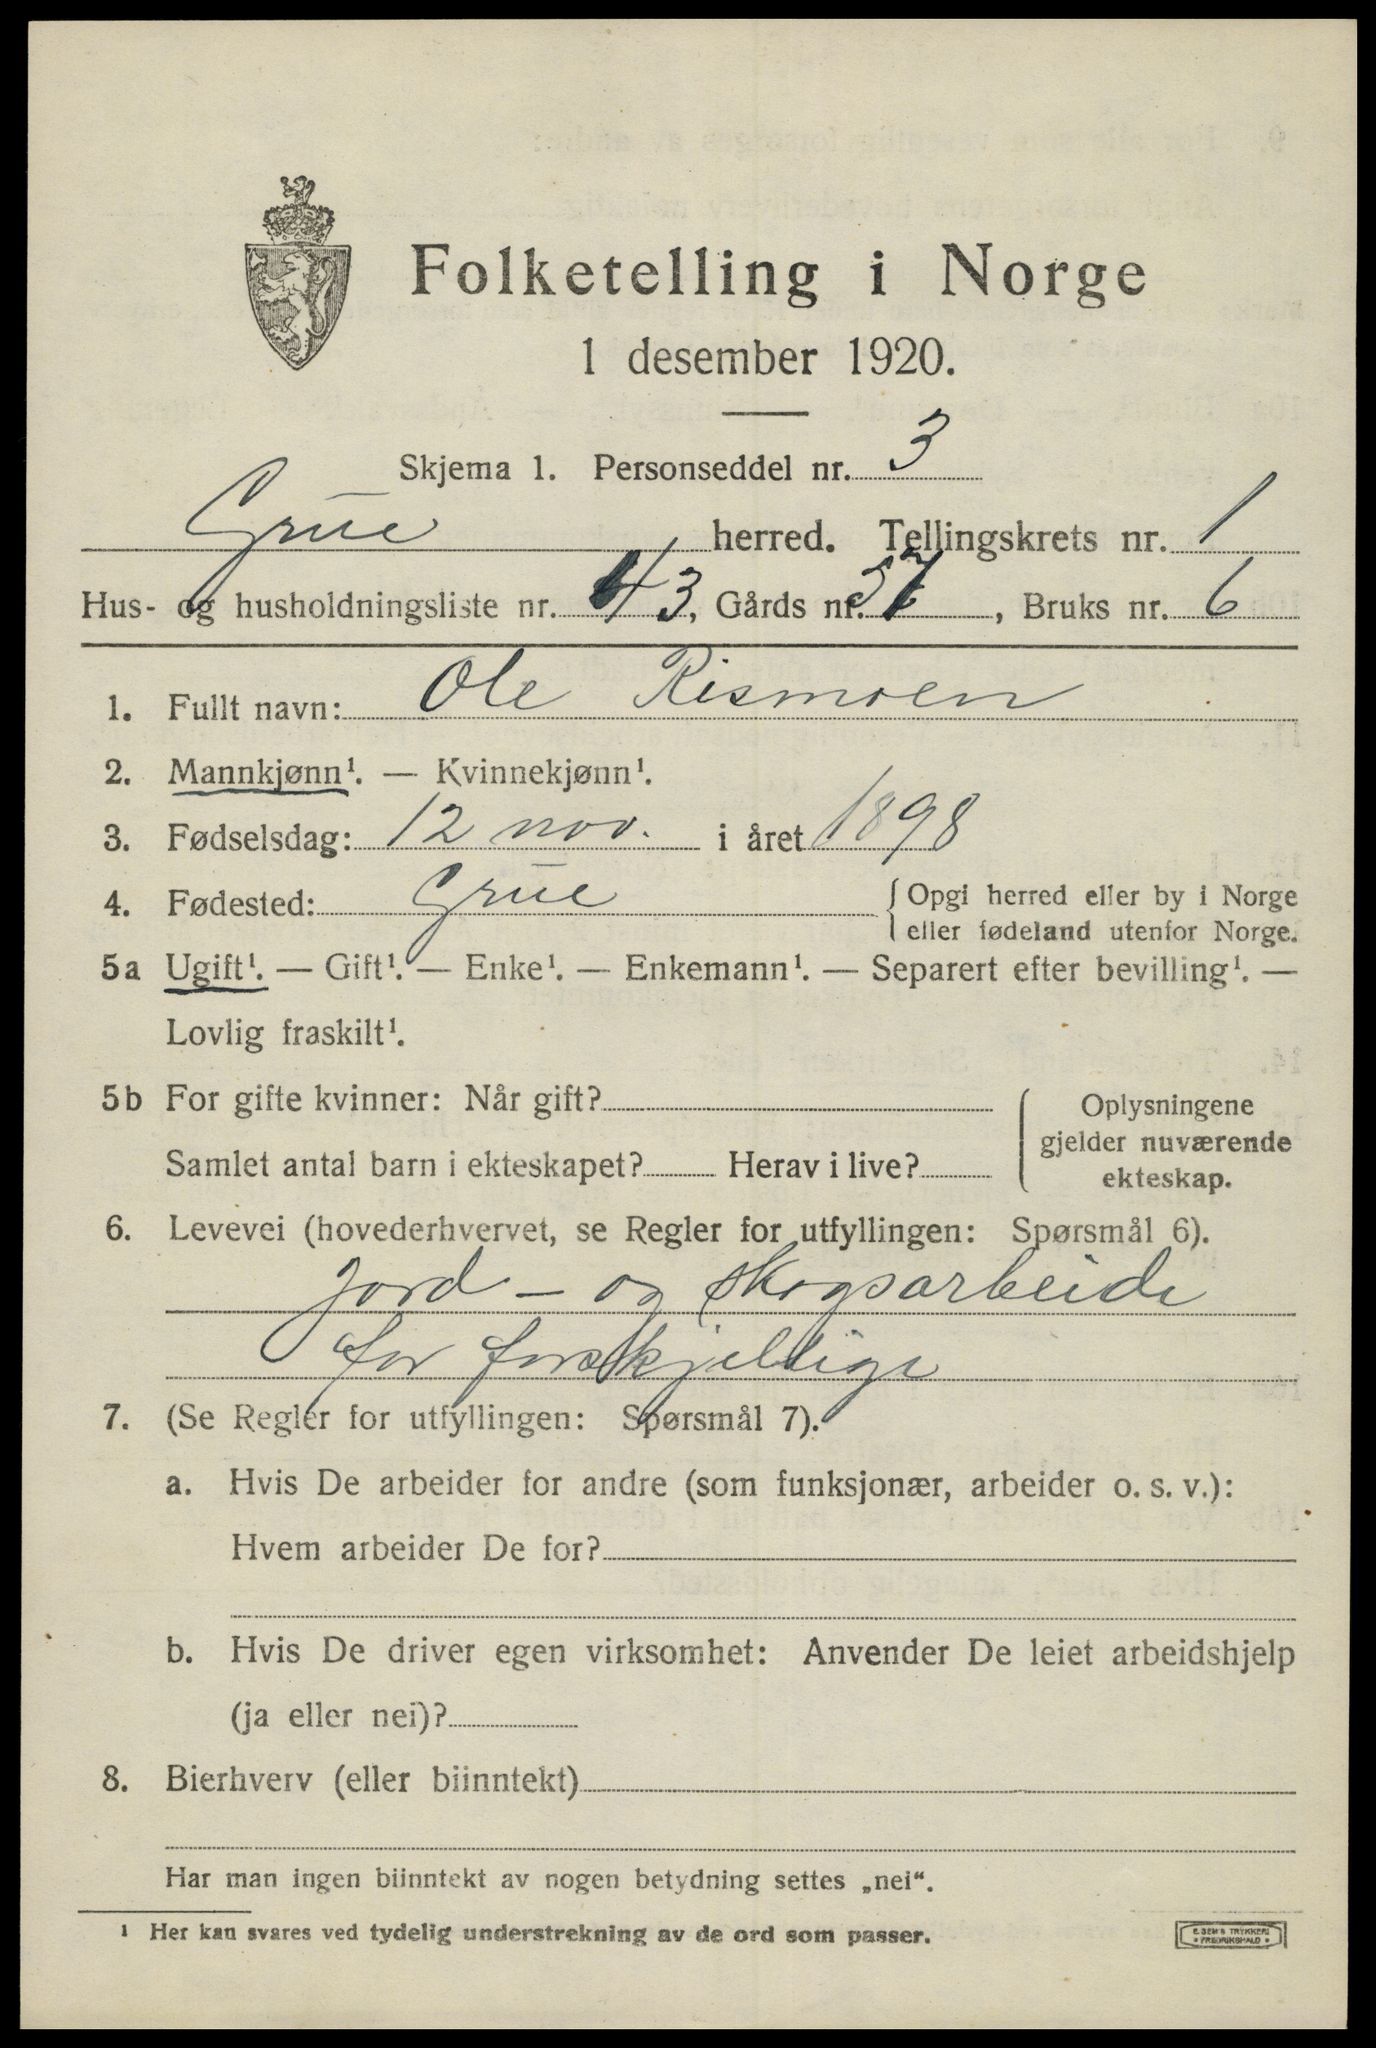 Folketelling i Norge
1 desember 1920.
Skjema 1. Personseddel nr. 3
Grue herred. Tellingskrets nr. 1
Hus- og husholdningsliste nr. 43, Gårds nr. 57, Bruks nr. 6
1. Fullt navn: Ole Rismoen
2. Mannkjønn¹. — Kvinnekjønn¹.
3. Fødselsdag: 12 nov. i året 1898
4. Fødested: Grue {Opgi herred eller by i Norge
eller fødeland utenfor Norge.
5a Ugift¹. — Gift¹. — Enke¹. — Enkemann¹. — Separert efter bevilling¹. —
Lovlig fraskilt¹.
5b For gifte kvinner: Når gift?
Samlet antal barn i ekteskapet? Herav i live?
Oplysningene
gjelder nuværende
ekteskap.
6. Levevei (hovederhvervet, se Regler for utfyllingen: Spørsmål 6).
Jord - og skogsarbeide
for forskjellige
7. (Se Regler for utfyllingen: Spørsmål 7).
a. Hvis De arbeider for andre (som funksjonær, arbeider o. s. v.):
Hvem arbeider De for?
b. Hvis De driver egen virksomhet: Anvender De leiet arbeidshjelp
(ja eller nei)?
8. Bierhverv (eller biinntekt)
Har man ingen biinntekt av nogen betydning settes „nei“.
¹ Her kan svares ved tydelig understrekning av de ord som passer.
E. SEM'S TRYKKERI
FREDRIKSHALD